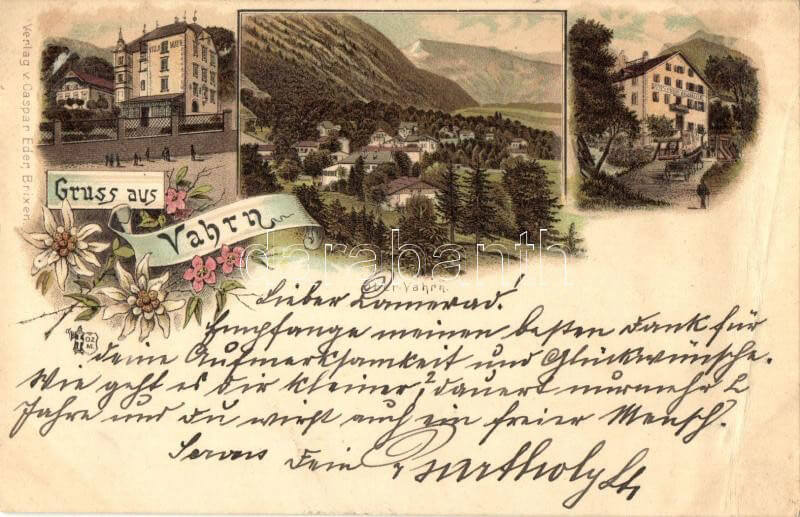 VILLA MAYR
Gruss aus
Vahrn
Ober Vahrn.
Verlag v. Caspar Eder, Brixen
darabanth
Lieber Camerad!
Empfange meinen besten Dank für
deine Aufmerksamkeit und Glückwünsche.
Wie geht es dir kleiner? dauert nurmehr 2
Jahre und du wirst auch ein freier Mensch.
Servus Dein